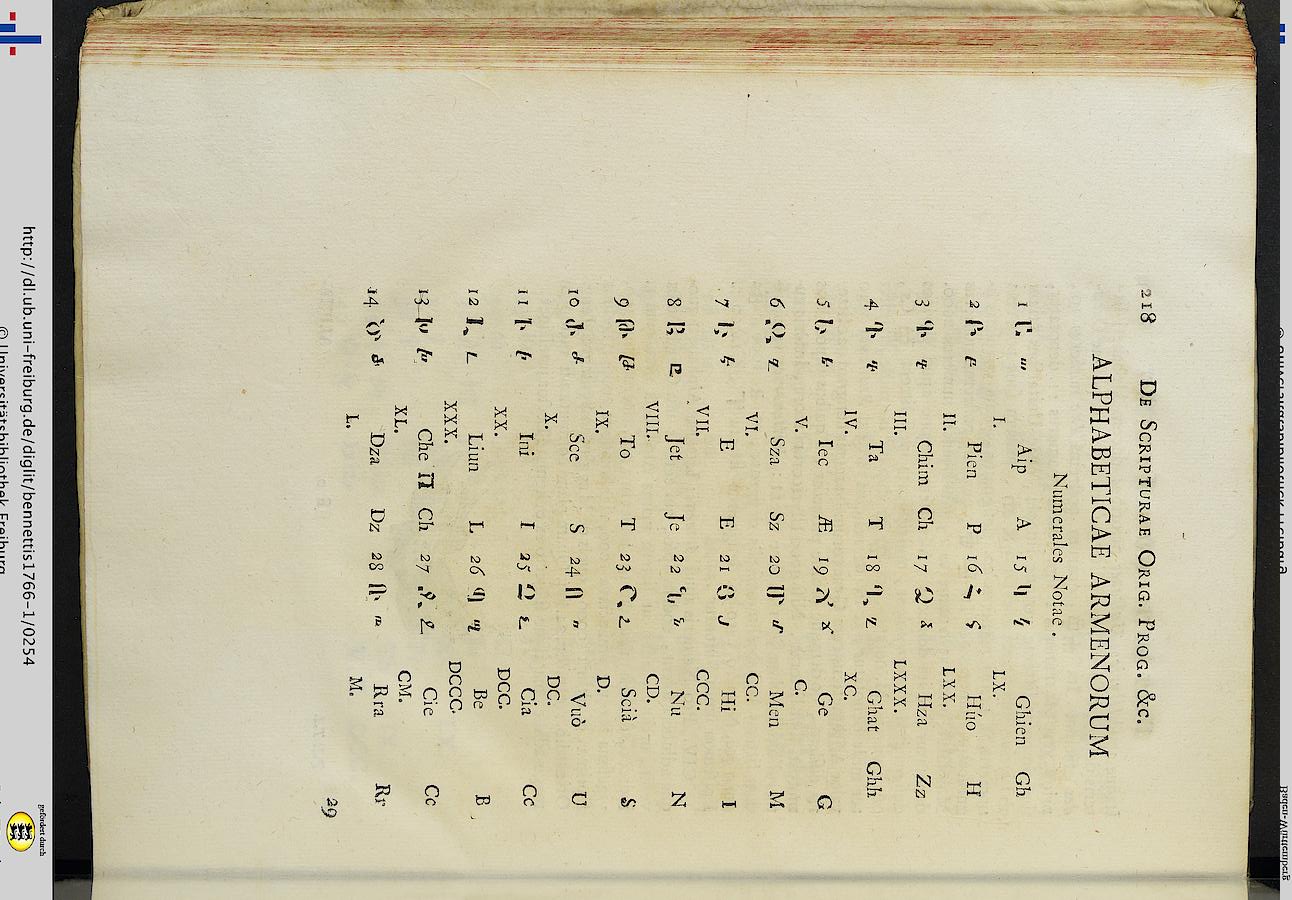 218 DE SCRIPTURAE ORIG. PROG. &c.
ALPHABETICAE ARMENORUM
Numerales Notae.
1 Ա ա Aip A 15 Կ կ Ghien Gh
I. LX.
2 Բ բ Pien P 16 Հ հ Húo H
II. LXX.
3 Գ գ Chim Ch 17 Ձ ձ Hza Zz
III. LXXX.
4 Դ դ Ta T 18 Ղ ղ Ghat Ghh
IV. XC.
5 Ե ե Iec Æ 19 Ճ ճ Ge G
V. C.
6 Զ զ Sza Sz 20 Մ մ Men M
VI. CC.
7 Է է E E 21 Յ յ Hi I
VII. CCC.
8 Ը ը Jet Je 22 Ն ն Nu N
VIII. CD.
9 Թ թ To T 23 Շ շ Scià S
IX. D.
10 Ժ ժ Sce S 24 Ո ո Vuò U
X. DC.
11 Ի ի Ini I 25 Չ չ Cia Cc
XX. DCC.
12 Լ լ Liun L 26 Պ պ Be B
XXX. DCCC.
13 Խ խ Che Π Ch 27 Ջ ջ Cie Cc
XL. CM.
14 Ծ ծ Dza Dz 28 Ռ ռ Rra Rr
L. M.
29
http://dl.ub.uni-freiburg.de/diglit/bennettis1766-1/0254
© Universitätsbibliothek Freiburg
gefördert durch